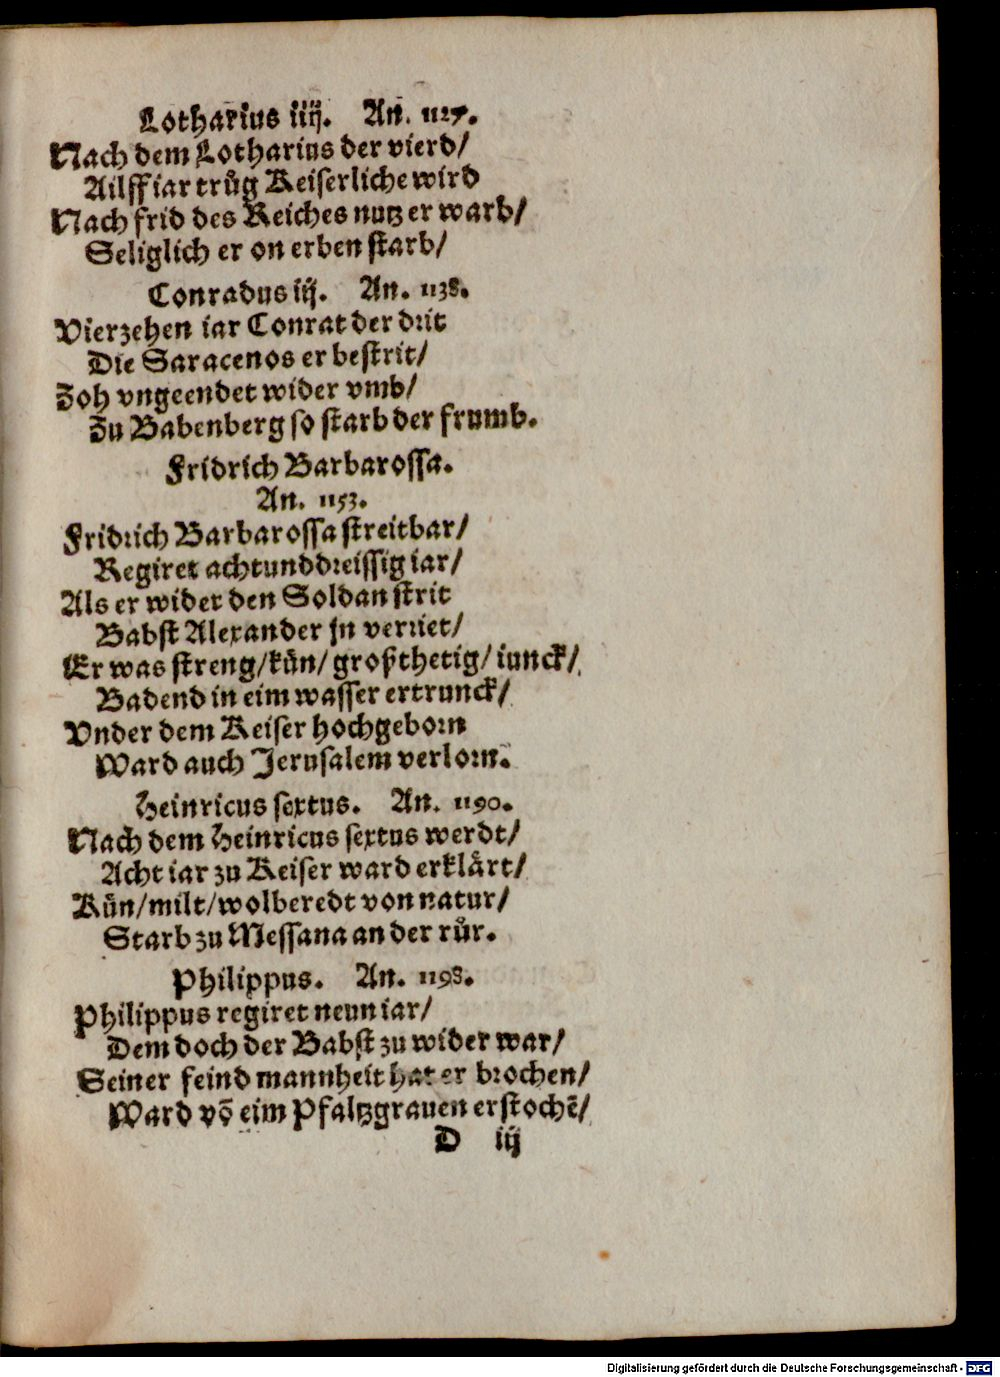 Lotharius iiij. An. 1127.
Nach dem Lotharius der vierd/
Ailff iar truͤg Keiserliche wird
Nach frid des Reiches nutz er warb/
Seliglich er on erben starb/
Conradus iij. An. 1138.
Vierzehen iar Conrat der drit
Die Saracenos er bestrit/
Zoh vngeendet wider vmb/
Zu Babenberg so starb der frumb.
Fridrich Barbarossa.
An. 1153.
Fridrich Barbarossa streitbar/
Regiret achtunddreissig iar/
Als er wider den Soldan strit
Babst Alexander jn verriet/
Er was streng/kuͤn/ großthetig/ iunck/
Badend in eim wasser ertrunck/
Vnder dem Keiser hochgeborn
Ward auch Jerusalem verlorn.
Heinricus sextus. An. 1190.
Nach dem Heinricus sextus werdt/
Acht iar zu Keiser ward erklaͤrt/
Kuͤn/milt/wolberedt von natur/
Starb zu Messana an der ruͤr.
Philippus. An. 1198.
Philippus regiret neun iar/
Dem doch der Babst zu wider war/
Seiner feind mannheit hat er brochen/
Ward võ eim Pfaltzgrauen erstochẽ/
D iij
Digitalisierung gefördert durch die Deutsche Forschungsgemeinschaft - DFG